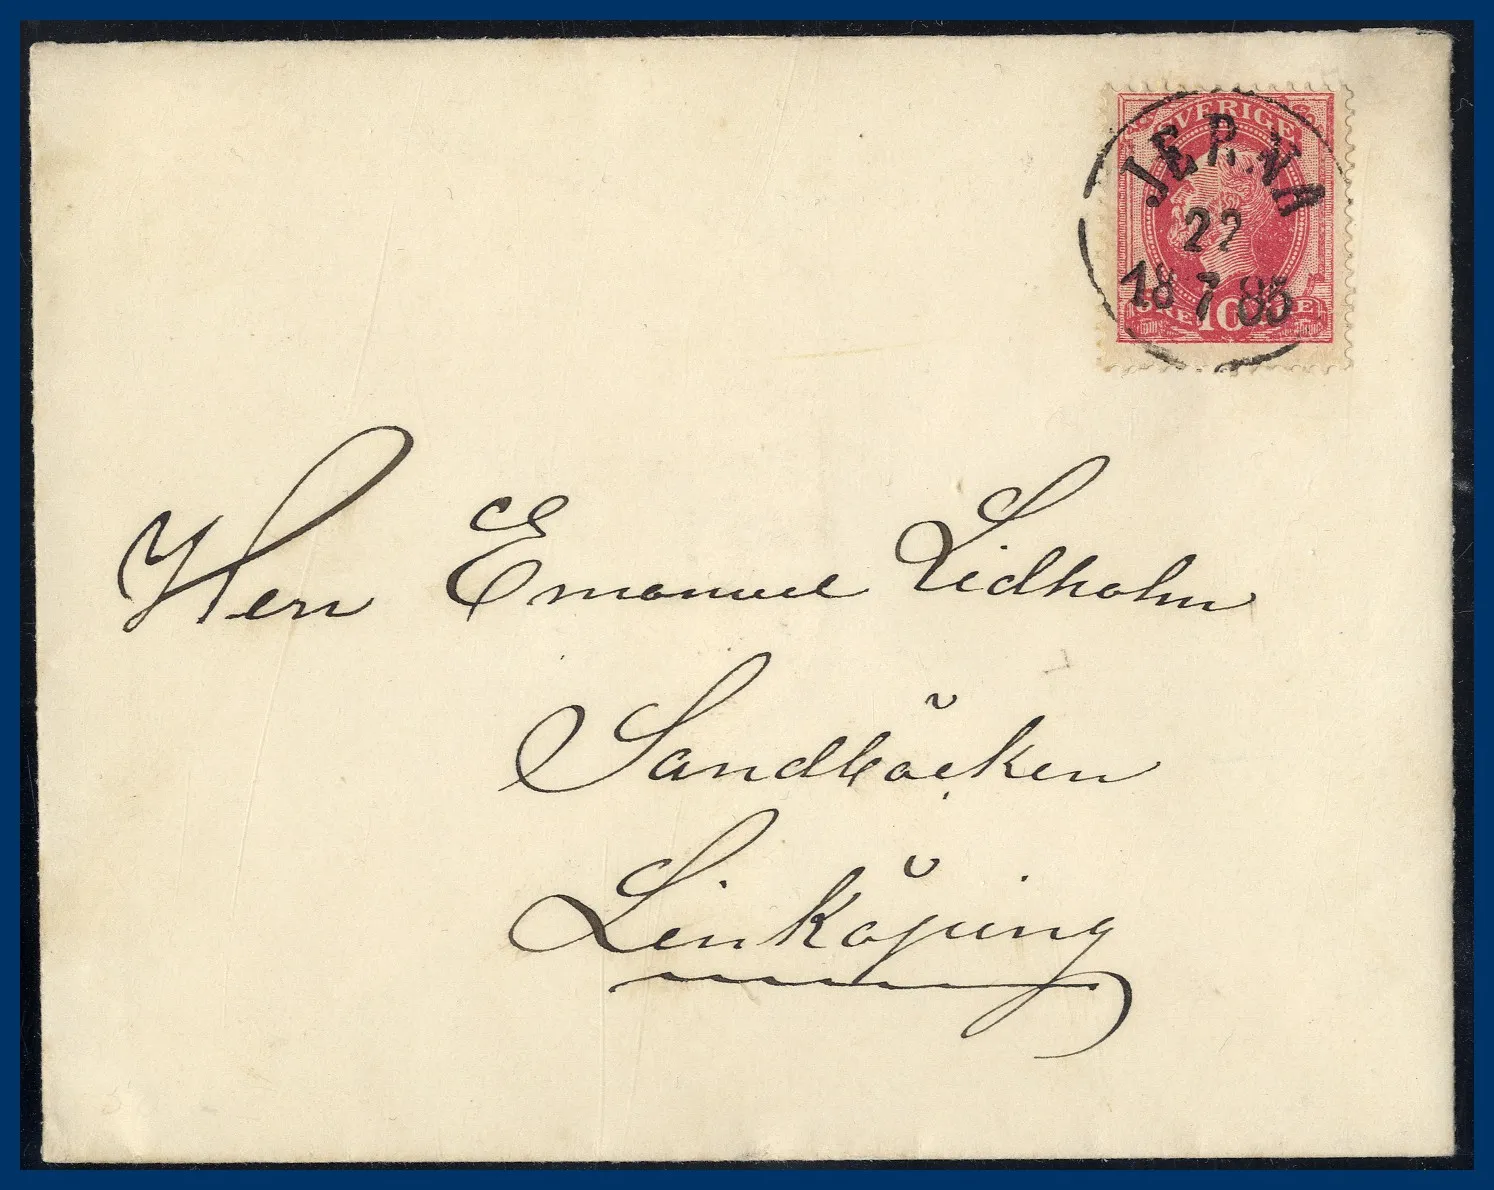 SVERIGE
JERNA
22
18 7 85
ÖRE 10 ÖRE
Herr Emanuel Lidholm
Sandbäcken
Linköping